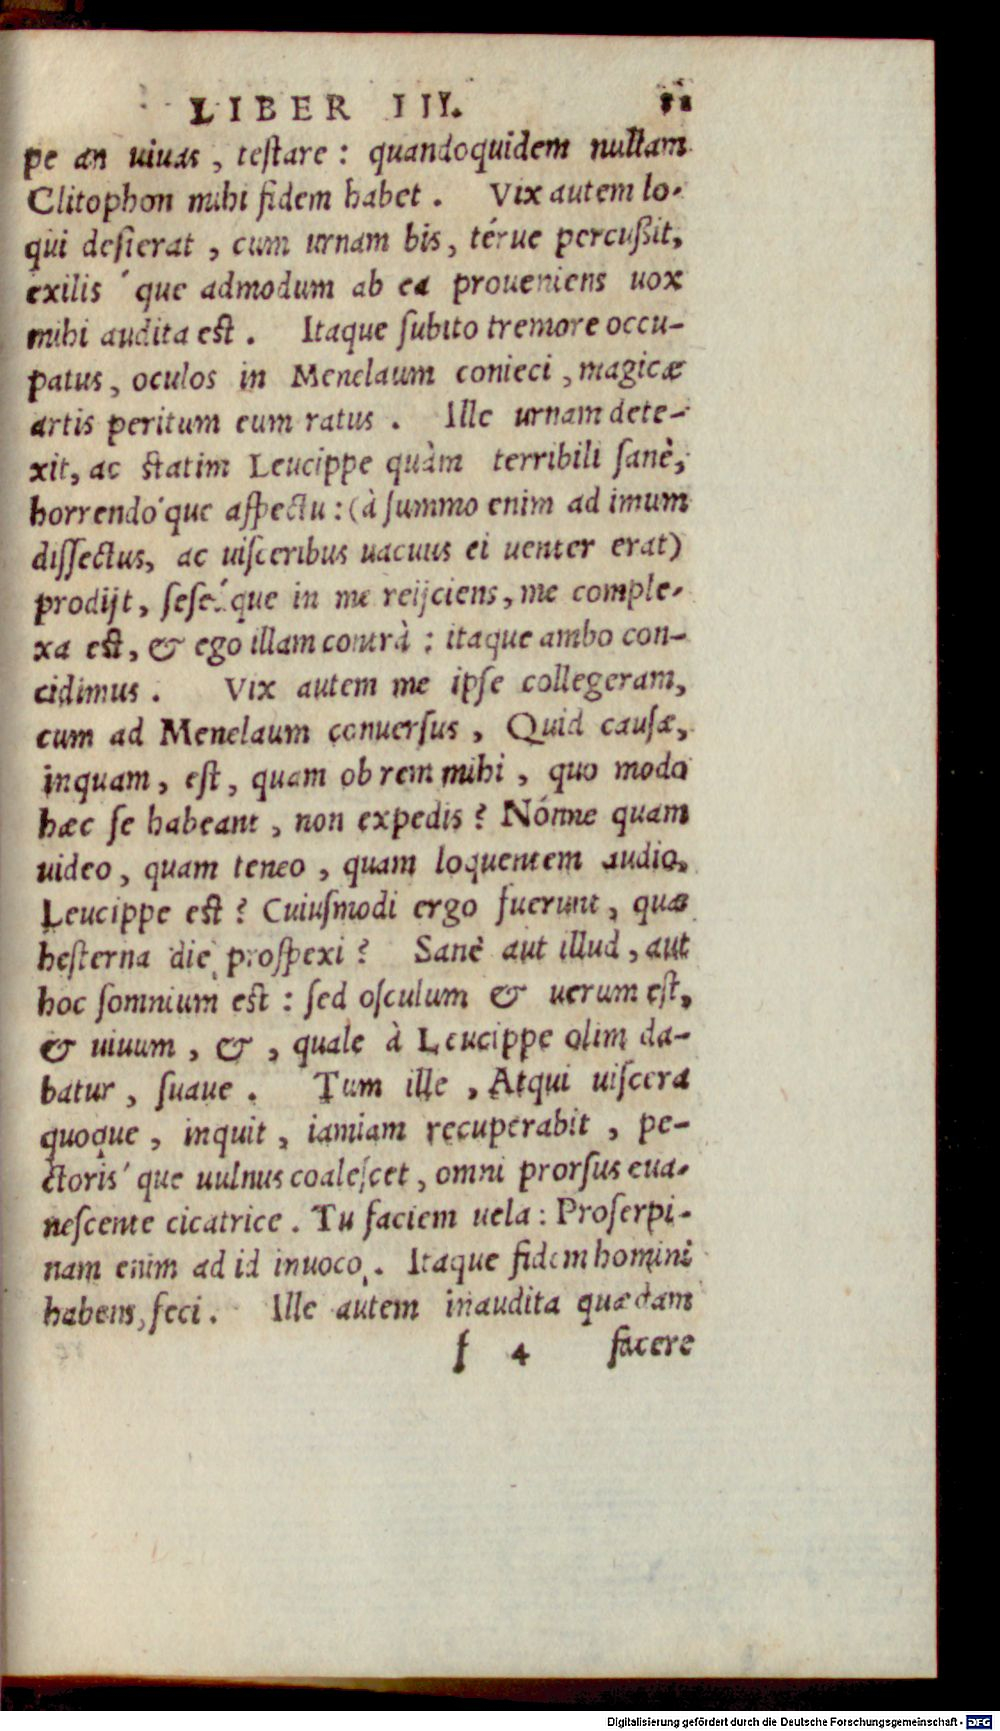 LIBER III.
pe an uiuas, testare: quandoquidem nullam
Clitophon mihi fidem habet. Vix autem lo-
qui desierat, cum urnam bis, térue percußit,
exilis´que admodum ab ea proueniens uox
mihi audita est. Itaque subito tremore occu-
patus, oculos in Menelaum conieci, magicæ
artis peritum eum ratus. Ille urnam dete-
xit, ac statim Leucippe quàm terribili sanè,
horrendo´que aspectu: (à summo enim ad imum
dissectus, ac uisceribus uacuus ei uenter erat)
prodijt, sesé´que in me reijciens, me comple-
xa est, & ego illam contrà: itaque ambo con-
cidimus. Vix autem me ipse collegeram,
cum ad Menelaum conuersus, Quid causæ,
inquam, est, quam ob rem mihi, quo modo
hæc se habeant, non expedis? Nónne quam
uideo, quam teneo, quam loquentem audio,
Leucippe est? Cuiusmodi ergo fuerunt, quæ
hesterna die prospexi? Sanè aut illud, aut
hoc somnium est: sed osculum & uerum est,
& uiuum, &, quale à Leucippe olim da-
batur, suaue. Tum ille, Atqui uiscera
quoque, inquit, iamiam recuperabit, pe-
ctoris´que uulnus coalescet, omni prorsus eua-
nescente cicatrice. Tu faciem uela: Proserpi-
nam enim ad id inuoco. Itaque fidem homini
habens, feci. Ille autem inaudita quædam
f 4 facere
Digitalisierung gefördert durch die Deutsche Forschungsgemeinschaft - DFG